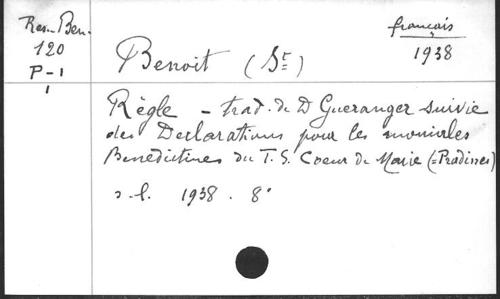 Res. Ben.
français
120
1938
P-1
1
Benoit (St)
Règle - trad. de D Gueranger suivie
des Declarations pour les moniales
Benedictines du T. S. Coeur de Marie (=Pradines)
s. l. 1938. 8°